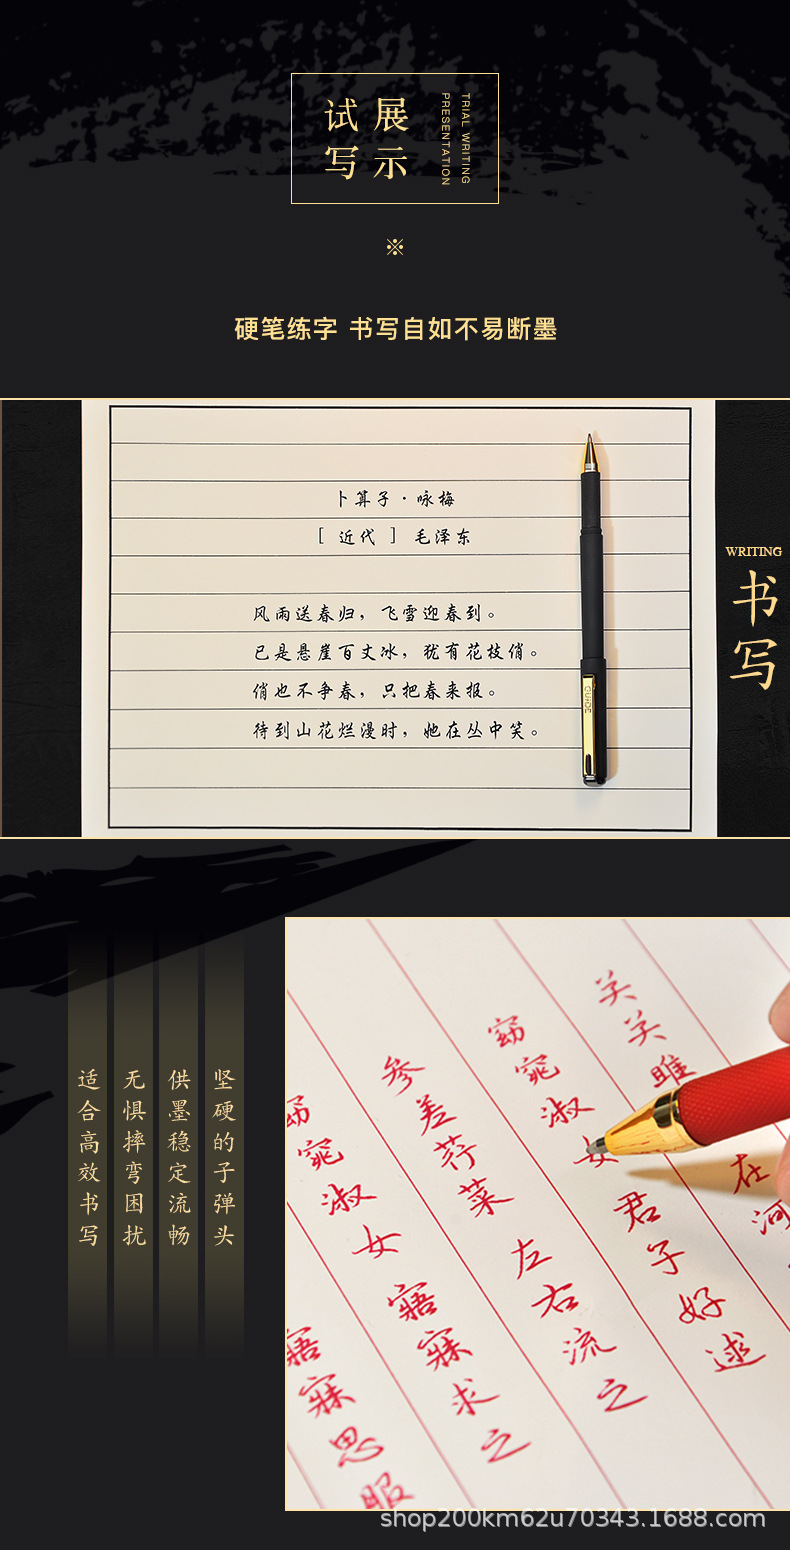 试 展
写 示
TRIAL WRITING
PRESENTATION
※
硬笔练字 书写自如不易断墨
卜算子·咏梅
[ 近代 ] 毛泽东
风雨送春归，飞雪迎春到。
已是悬崖百丈冰，犹有花枝俏。
俏也不争春，只把春来报。
待到山花烂漫时，她在丛中笑。
GUIDE
WRITING
书写
坚硬的子弹头
供墨稳定流畅
无惧摔弯困扰
适合高效书写
关关雎
在河
窈窕淑女君子好逑
参差荇菜左右流之
窈窕淑女寤寐求之
寤寐思服
shop200km62u70343.1688.com